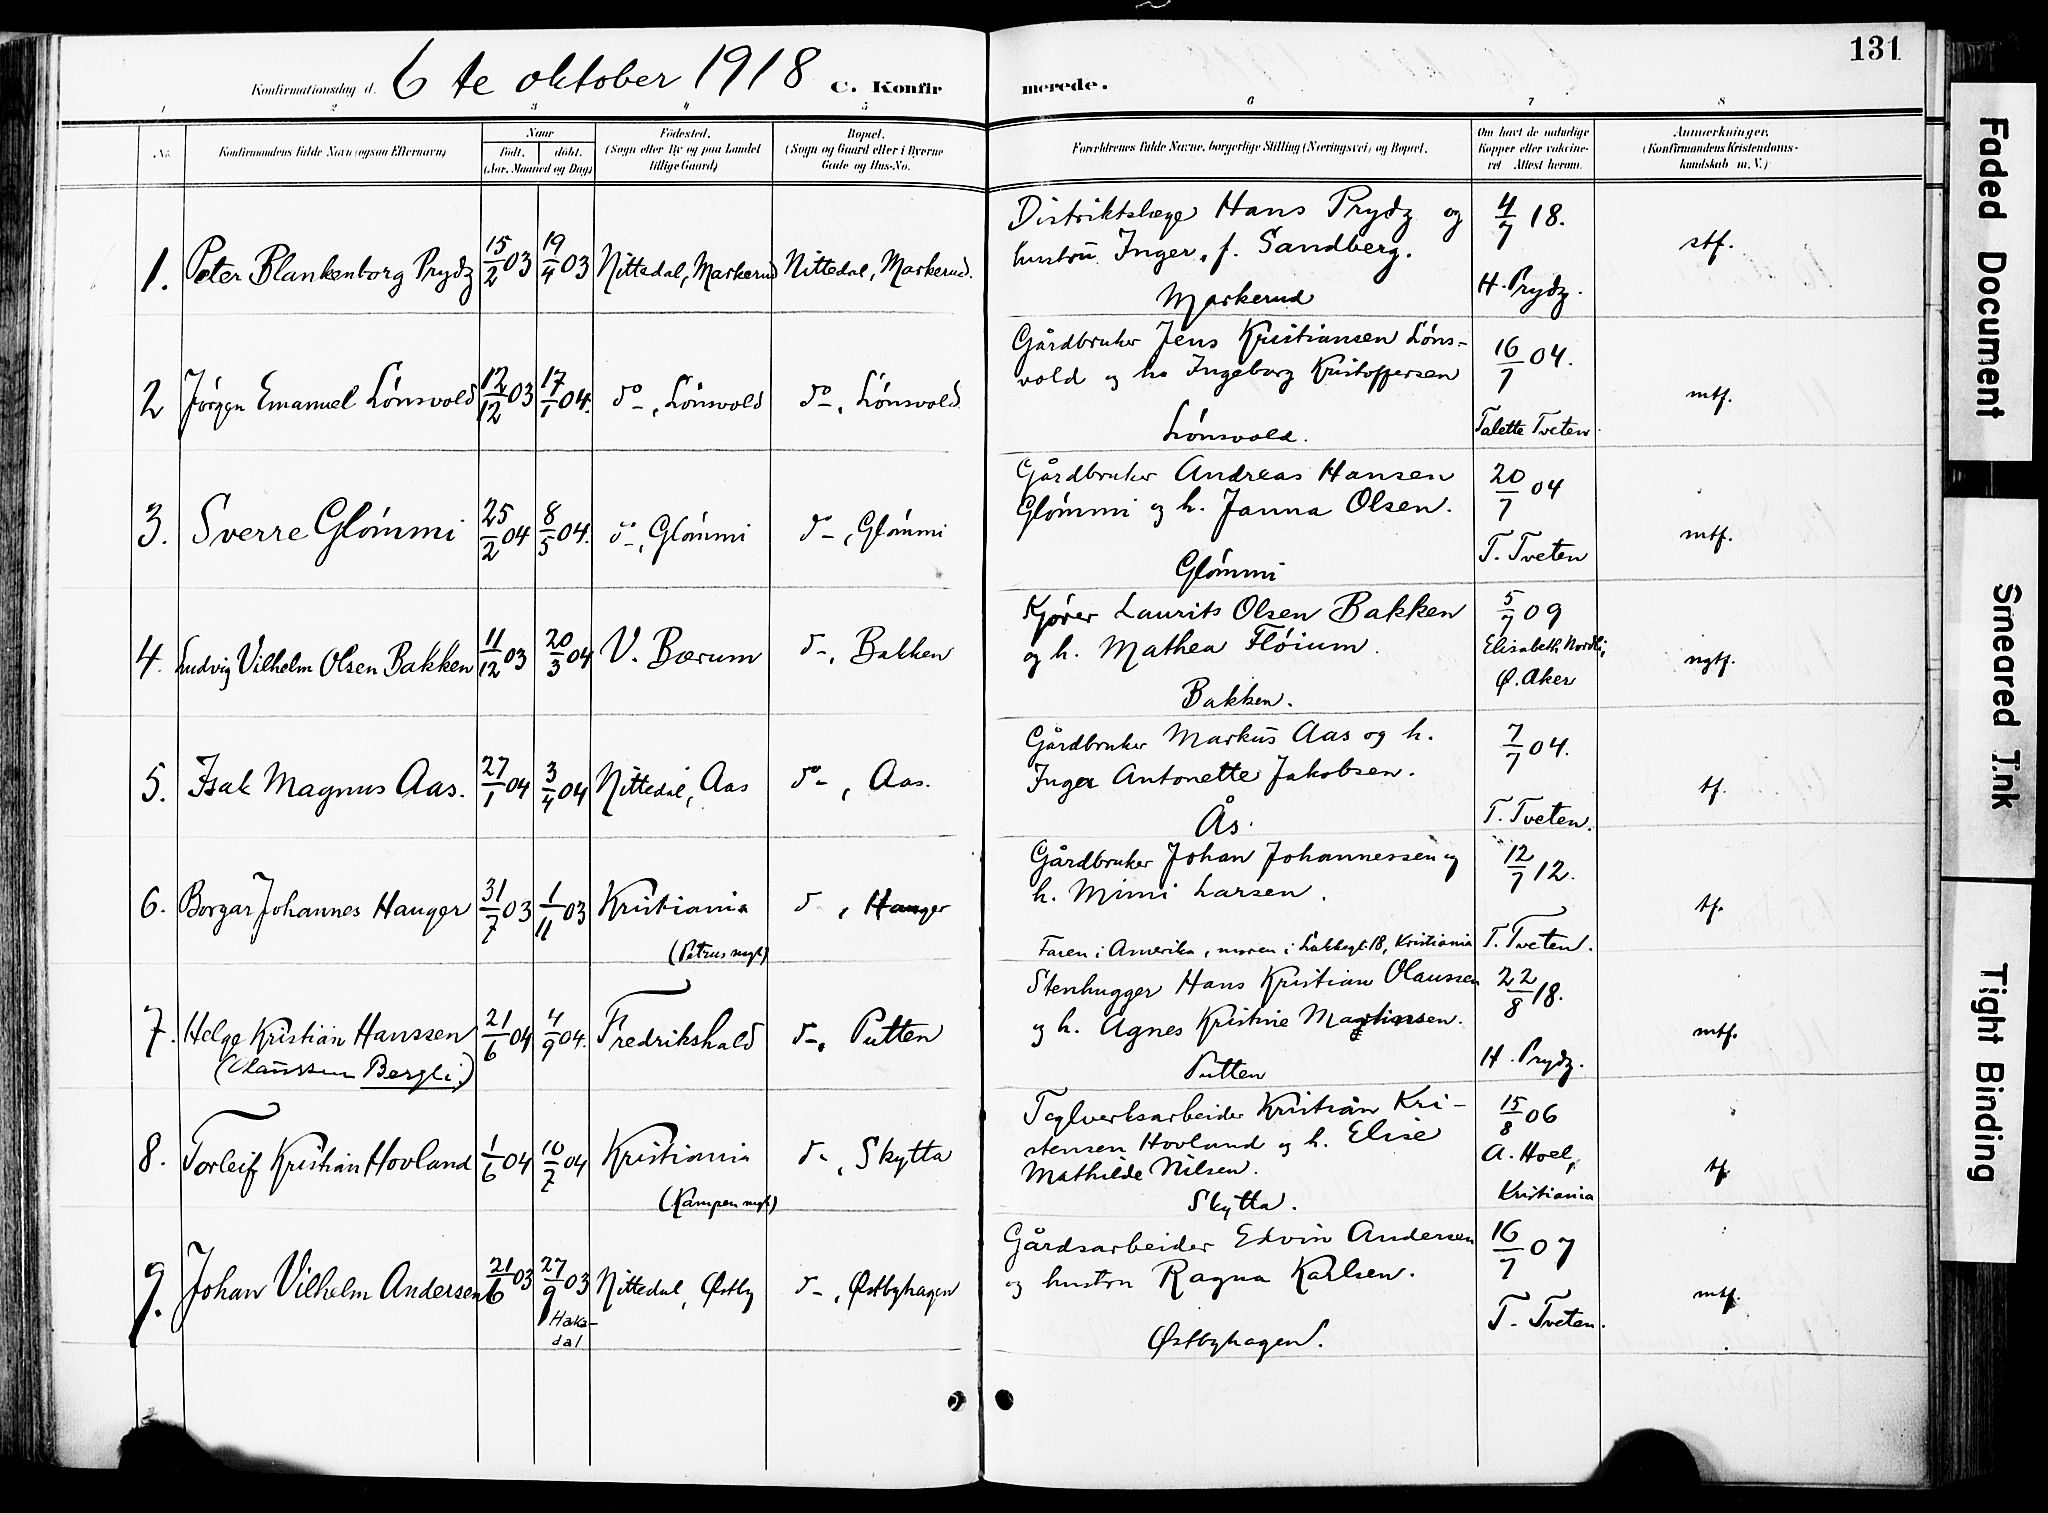 131
Konfirmationsdag d. 6 te oktober 1918 C. Konfirmerede.
1 2 3 4 5 6 7 8
No. Konfirmandens fulde Navn (ogsaa Efternavn)
Naar
født. døbt.
(Aar, Maaned og Dag)
Fødested.
(Sogn eller By og paa Landet
tillige Gaard)
Bopæl.
(Sogn og Gaard eller i Byerne
Gade og Hus-No.
Forældrenes fulde Navne, borgerlige Stilling (Næringsvei) og Bopæl.
Om havt de naturlige
Kopper eller vaccine-
ret Attest herom.
Anmærkninger,
(Konfirmandens Kristendoms-
kundskab m. V.)
1. Peter Blankenborg Prydz 15/2 03 19/4 03 Nittedal, Markerud Nittedal, Markerud.
Distriktslæge Hans Prydz og
hustru Inger, f. Sandberg.
Markerud
4/7 18.
H. Prydz.
stf.
2 Jørgen Emanuel Lønsvold 12/12 03 17/1 04. do, Lønsvold do, Lønsvold
Gårdbruker Jens Kristiansen Løns-
vold og hu Ingeborg Kristoffersen
Lønsvold.
16/7 04.
Talette Tveten.
mtf.
3. Sverre Glømmi 25/2 04 8/5 04. do, Glømmi do, Glømmi
Gårdbruker Andreas Hansen
Glømmi og h. Janna Olsen.
Glømmi
20/7 04
T. Tveten
mtf.
4. Ludvig Vilhelm Olsen Bakken 11/12 03 20/3 04 V. Bærum d-, Bakken
Kjører Laurits Olsen Bakken
og h. Mathea Fløium.
Bakken.
5/7 09
Elisabeth Nordli,
Ø. Aker
ngtf.
5. Isak Magnus Aas. 27/1 04 3/4 04 Nittedal, Aas do, Aas.
Gårdbruker Markus Aas og h.
Inger Antonette Jakobsen.
Ås.
7/7 04.
T. Tveten.
tf.
6. Borgar Johannes Hauger 31/7 03 1/11 03 Kristiania d, Hauger
(Petrus mgt)
Gårdbruker Johan Johannessen og
h. Mimi Larsen.
Faren i Amerika, moren i Lakkegt. 18, Kristiania
12/7 12.
T. Tveten.
tf.
7. Helge Kristian Hanssen 21/6 04 4/9 04. Fredrikshald d-, Putten
(Olaussen Bergli.)
Stenhugger Hans Kristian Olaussen
og h. Agnes Kristine Martinsen.
Putten
22/8 18.
H. Prydz.
mtf.
8. Torleif Kristian Hovland 1/6 04 10/7 04 Kristiania d-, Skytta
(Kampen mgt)
Teglverksarbeider Kristian Kri-
stensen Hovland og h. Elise
Mathilde Nilsen.
Skytta.
15/8 06
A. Hoel,
Kristiania
tf.
9. Johan Vilhelm Andersen 21/6 03 27/9 03 Nittedal, Østby d-, Østbyhagen
Haka-
dal
Gårdsarbeider Edvin Andersen
og hustru Ragna Karlsen.
Østbyhagen.
16/7 07
T. Tveten.
mtf.
Faded Document
Smeared Ink
Tight Binding